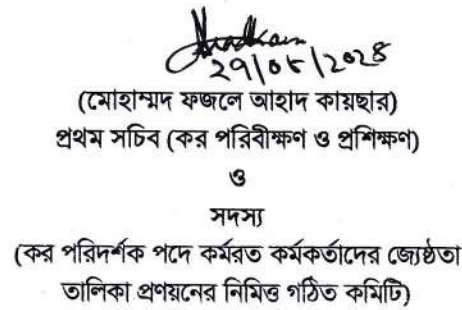 29/05/2025
(মোহাম্মদ ফজলে আহাদ কায়ছার)
প্রথম সচিব (কর পরিবীক্ষণ ও প্রশিক্ষণ)
ও
সদস্য
(কর পরিদর্শক পদে কর্মরত কর্মকর্তাদের জ্যেষ্ঠতা
তালিকা প্রণয়নের নিমিত্ত গঠিত কমিটি)